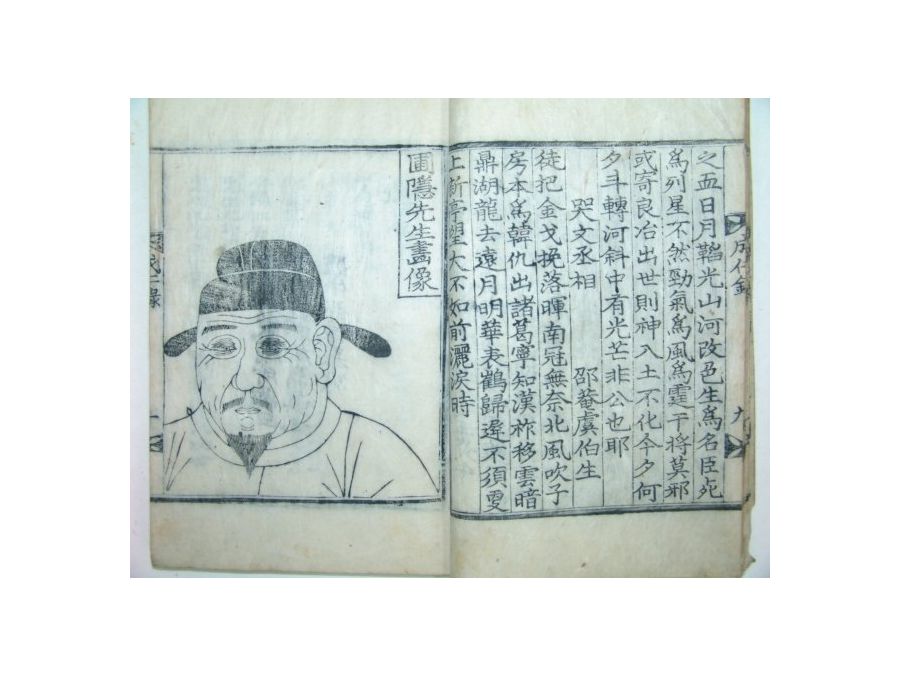 之血日月韜光山河改色生爲名臣死
爲列星不然勁氣爲風爲霆干將莫邪
或寄良冶出世則神入土不化今夕何
夕斗轉河斜中有光芒非公也耶
哭文丞相 邵菴虞伯生
徒把金戈挽落暉南冠無奈北風吹子
房本爲韓仇出諸葛寧知漢祚移雲暗
鼎湖龍去遠月明華表鶴歸遲不須更
上新亭望大不如前灑淚時
圃隱先生畫像